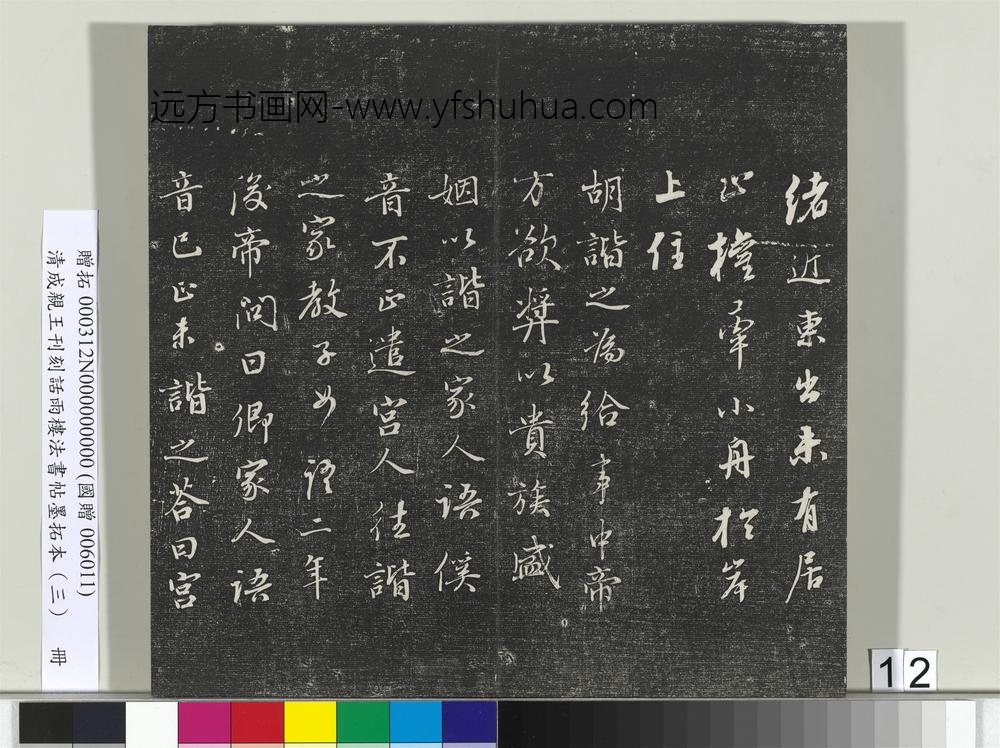 远方书画网-www.yfshuhua.com
緒近東出未有居
止權牽小舟於岸
上住
胡諧之為給事中帝
方欲奨以貴族盛
姻以諧之家人語傒
音不正遣宮人往諧
之家教子女語二年
後帝問曰卿家人語
音已正未諧之答曰宮
贈拓 000312N000000000(國贈 006011)
清成親王刊刻話雨樓法書帖墨拓本(三) 冊
12